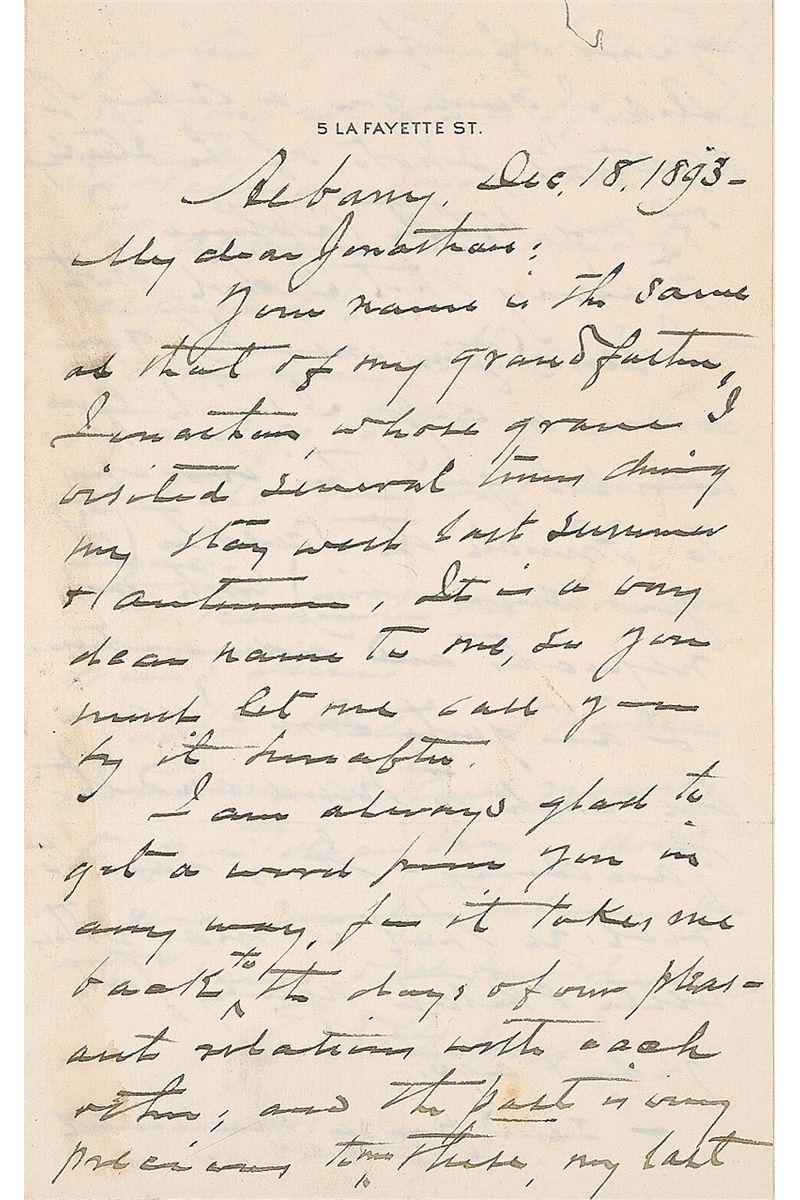 5 LA FAYETTE ST.
Albany, Dec. 18, 1893-
My dear Jonathan:
Your name is the same
as that of my grandfather,
Jonathan, whose grave I
visited several times during
my stay west last summer
& autumn. It is a very
dear name to me, so you
must let me call you
by it hereafter.
I am always glad to
get a word from you in
any way, for it takes me
back to the days of our pleas-
ant relations with each
other; and the past is very
precious to me these, my last